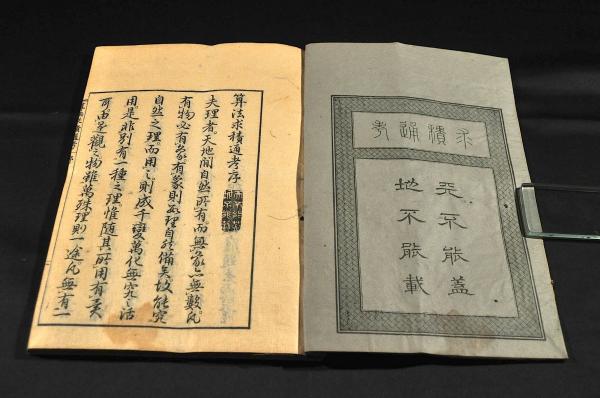 求積通考
天不能蓋
地不能載
算法求積通考序
夫理者天地間自然所有而無象無數凡
有物必有象有象則數理自然備矣故能究
自然之理而用之則千變萬化無究之活
用是非別有一種之理惟隨其所用有
可由是觀之物雖萬殊理則一途凡無有一